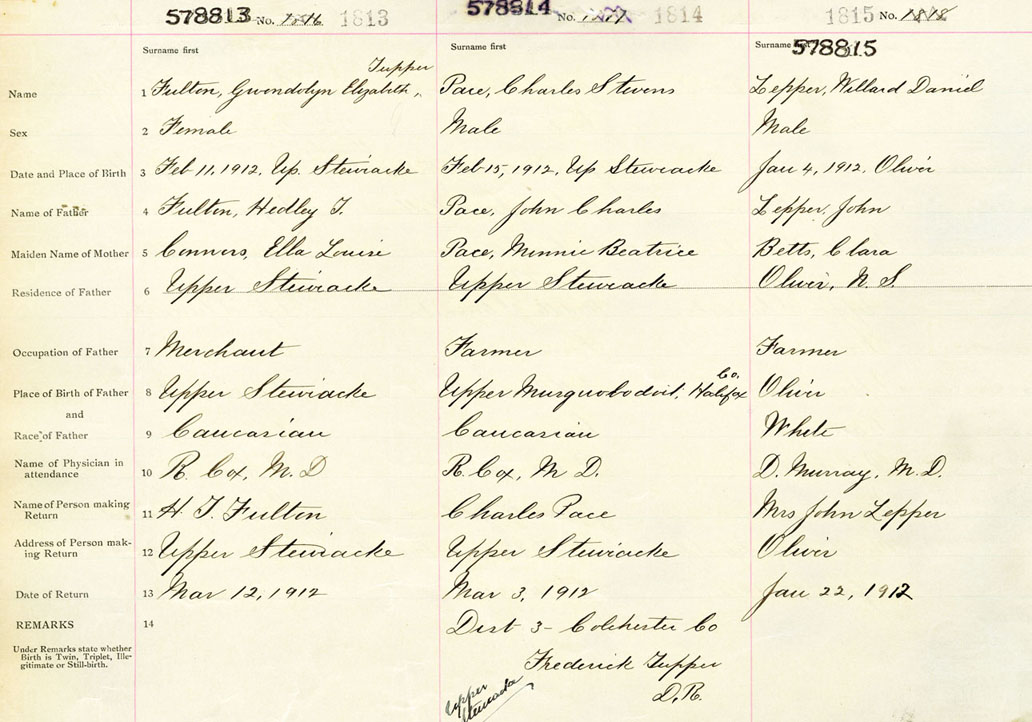 578813 No. 1813
578814 No. 1814
1815 No. 578815
Surname first Surname first Surname first
Tupper
Name 1 Fulton, Gwendolyn Elizabeth, Pace, Charles Stevens Lepper, Willard Daniel
Sex 2 Female Male Male
Date and Place of Birth 3 Feb 11, 1912, Up. Stewiacke Feb 15, 1912, Up Stewiacke Jan 4, 1912, Oliver
Name of Father 4 Fulton, Hedley T. Pace, John Charles Lepper, John
Maiden Name of Mother 5 Connors, Ella Louise Pace, Minnie Beatrice Betts, Clara
Residence of Father 6 Upper Stewiacke Upper Stewiacke Oliver, N. S.
Occupation of Father 7 Merchant Farmer Farmer
Place of Birth of Father 8 Upper Stewiacke Upper Musquobodoit, Halifax Co. Oliver
and
Race of Father 9 Caucasian Caucasian White
Name of Physician in attendance 10 R. Cox, M. D R. Cox, M D. D. Murray, M. D.
Name of Person making Return 11 H. T. Fulton Charles Pace Mrs John Lepper
Address of Person mak-ing Return 12 Upper Stewiacke Upper Stewiacke Oliver
Date of Return 13 Mar 12, 1912 Mar 3, 1912 Jan 22, 1912
REMARKS 14 Dist 3 - Colchester Co
Under Remarks state whether
Birth is Twin, Triplet, Ille-
gitimate or Still-birth.
Frederick Tupper
D. R.
Upper
Stewiacke